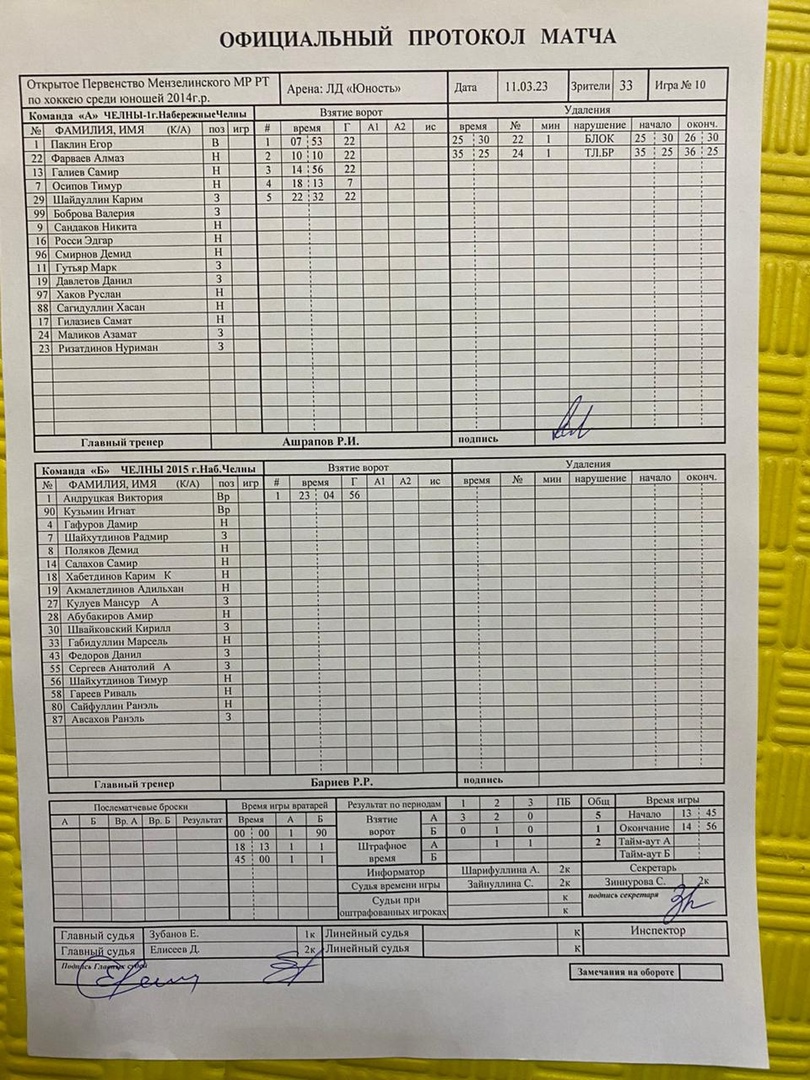 ОФИЦИАЛЬНЫЙ ПРОТОКОЛ МАТЧА
Открытое Первенство Мензелинского МР РТ по хоккею среди юношей 2014г.р. Арена: ЛД «Юность» Дата 11.03.23 Зрители 33 Игра № 10
Команда «А» ЧЕЛНЫ-1г.НабережныеЧелны Взятие ворот Удаления
№ ФАМИЛИЯ, ИМЯ (К/А) поз игр # время Г А1 А2 ис время № мин нарушение начало оконч.
1 Паклин Егор В 1 07 53 22 25 30 22 1 БЛОК 25 30 26 30
22 Фарваев Алмаз Н 2 10 10 22 35 25 24 1 ТЛ.БР 35 25 36 25
13 Галиев Самир Н 3 14 56 22
7 Осипов Тимур Н 4 18 13 7
29 Шайдуллин Карим З 5 22 32 22
99 Боброва Валерия З
9 Сандаков Никита Н
16 Росси Эдгар Н
96 Смирнов Демид Н
11 Гутьяр Марк З
19 Давлетов Данил З
97 Хаков Руслан Н
88 Сагидуллин Хасан Н
17 Гилазиев Самат Н
24 Маликов Азамат З
23 Ризатдинов Нуриман З
Главный тренер Ашрапов Р.И. подпись
Команда «Б» ЧЕЛНЫ 2015 г.Наб.Челны Взятие ворот Удаления
№ ФАМИЛИЯ, ИМЯ (К/А) поз игр # время Г А1 А2 ис время № мин нарушение начало оконч.
1 Андруцкая Виктория Вр 1 23 04 56
90 Кузьмин Игнат Вр
4 Гафуров Дамир Н
7 Шайхутдинов Радмир З
8 Поляков Демид Н
14 Салахов Самир Н
18 Хабетдинов Карим К Н
19 Акмалетдинов Адильхан Н
27 Кулуев Мансур А З
28 Абубакиров Амир Н
30 Швайковский Кирилл З
33 Габидуллин Марсель Н
43 Федоров Данил З
55 Сергеев Анатолий А З
56 Шайхутдинов Тимур Н
58 Гареев Риваль Н
80 Сайфуллин Ранэль Н
87 Авсахов Ранэль З
Главный тренер Бариев Р.Р. подпись
Послематчевые броски Время игры вратарей Результат по периодам 1 2 3 ПБ Общ Время игры
А Б Вр. А Вр. Б Результат Время А Б Взятие ворот А 3 2 0 5 Начало 13 45
00 00 1 90 Б 0 1 0 1 Окончание 14 56
18 13 1 1 Штрафное время А 1 1 2 Тайм-аут А
45 00 1 1 Б Тайм-аут Б
Информатор Шарифуллина А. 2к Секретарь
Судья времени игры Зайнуллина С. 2к Зиннурова С. 2к
Судьи при оштрафованных игроках к подпись секретаря
к
Главный судья Зубанов Е. 1к Линейный судья к Инспектор
Главный судья Елисеев Д. 2к Линейный судья к
Подпись Главных судей
Замечания на обороте